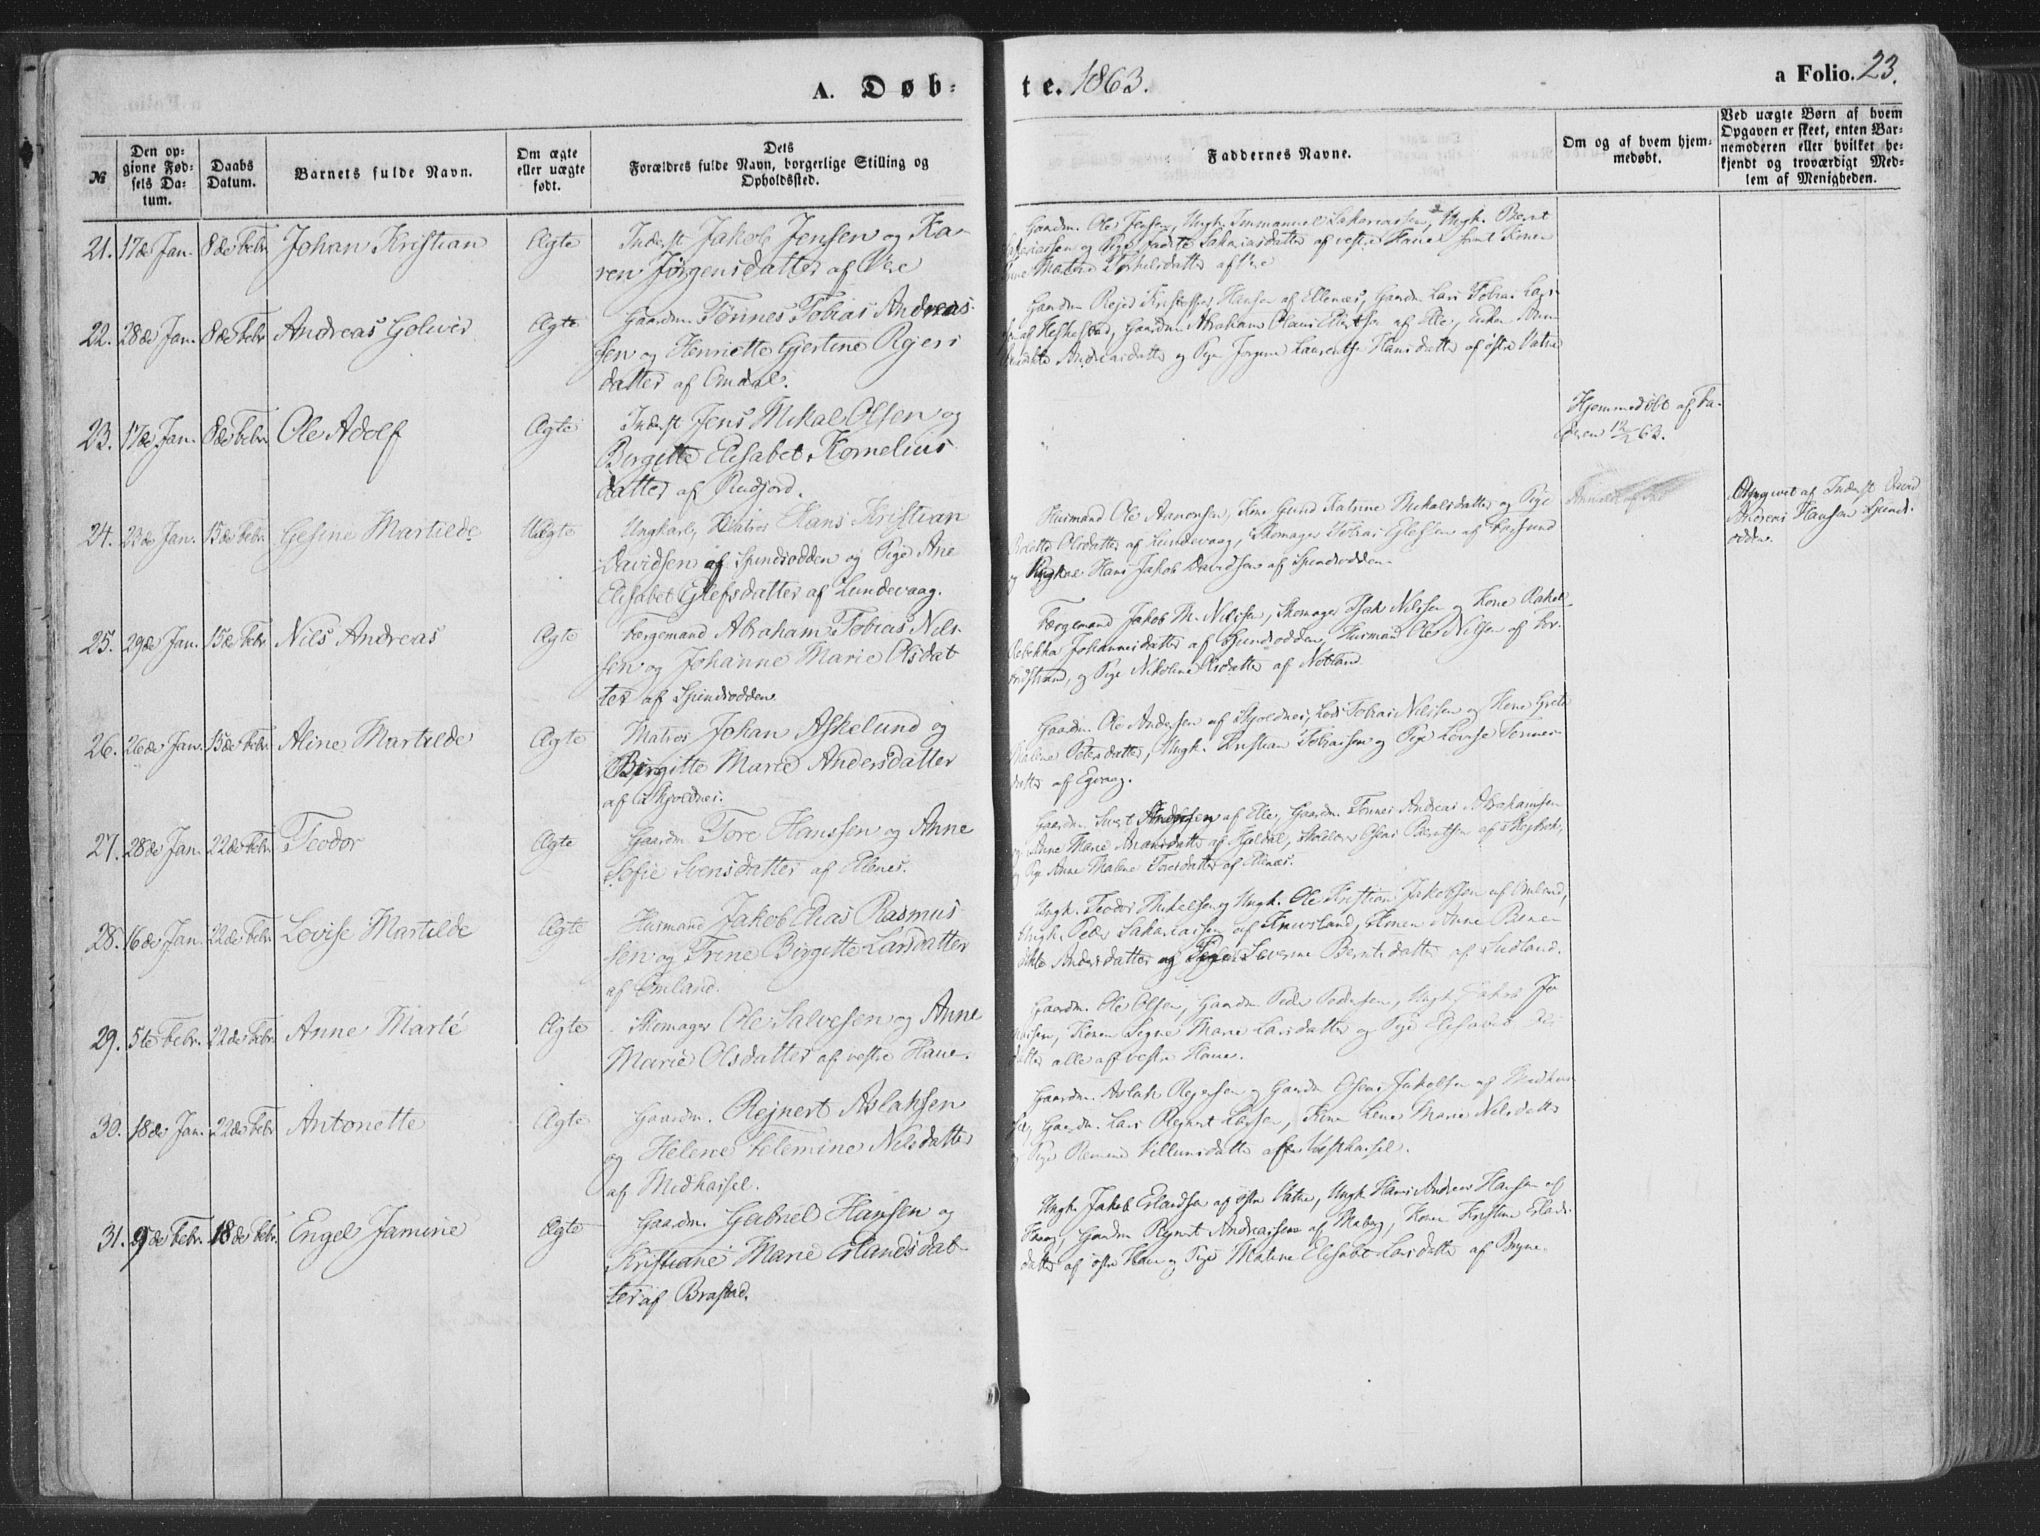 A. Døb-
te. 1863.
a Folio. 23.
№
Den op-
givne Fød-
sels Da-
tum.
Daabs
Datum.
Barnets fulde Navn.
Om ægte
eller uægte
født.
Dets
Forældres fulde Navn, borgerlige Stilling og
Opholdssted.
Faddernes Navne.
Om og af hvem hjem-
medøbt.
Ved uægte Børn af hvem
Opgaven er skeet, enten Bar-
nemoderen eller hvilket be-
kjendt og troværdigt Med-
lem af Menigheden.
21. 17de Jan. 8de Febr. Johan Kristian Ægte Inderst Jakob Jensen og Ka-
ren Jørgensdatter af Ore
Gaardm. Ole Jensen, Ungk. Immanuel Sakariassen, Ungk. Bernt
Sakariassen og Pige Sakariasdatter af vestre Haue samt Konen
Torkelsdatter af Ore
22. 28de Jan. 8de Febr. Andreas Goliver Ægte Gaardm. Tønnes Tobias Andreas-
sen og Henriette Gjertine Rejers
datter af Omdal.
Gaardm. Rejer Kristoffer Hansen af Ellenæs, Gaardm. Lars Tobias Lars-
sen af Heskestad, Gaardm. Abraham Olaus af Elle, Enken Ann
Andreasdatter og Pige Jørgine Laurentse Hansdatter af østre Vatne
23. 17de Jan. 8de Febr. Ole Adolf Ægte Inderst Jens Mikal Olsen og
Birgitte Elisabet Kornelius
datter af Rudjord.
Hjemmedøbt af Fa-
deren 63.
24. 23de Jan. 15de Febr. Gesine Martilde Uægte Ungkarl, Matros Hans Kristian
Davidsen af Spindsodden og Pige Ane
Elisabet Glefsdatter af Lundevaag.
Husmand Ole Aanonsen, Kone Gunild Katrine Mikalsdatter og Pige
Olsdatter af Lundevaag, Skomager Tobias Glefsen af Farsund
og Ungkarl Hans Jakob Davidsen af Spindsodden.
Opgivet af Inderst David
Andreas Hansen Spinds-
odden.
25. 29de Jan. 15de Febr. Nils Andreas Ægte Færgemand Abraham Tobias Nils-
sen og Johanne Marie Olsdat
ter af Spindsodden
Færgemand Jakob M. Nilssen, Skomager Isak Nilssen og Kone Rakel
Rebekka Johannesdatter af Spindsodden, Husmand Ole Nilsen af
og Pige Nikoline Olsdatter af Nobland
26. 26de Jan. 15de Febr. Aline Martilde Ægte Matros Johan Askelund og
Birgitte Marie Andersdatter
af Skjoldnes.
Gaardm. Ole Andersen af Skjoldnes, Lods Tobias Nilssen og Kone Grete
Malene Petersdatter, Ungk. Kristian Tobiassen og Pige Lovise Tønnes-
datter af Egvaag.
27. 28de Jan. 22de Febr. Teodor Ægte Gaardm. Tore Hanssen og Anne
Sofie Svensdatter af Ellenes.
Gaardm. Sivert Andersen af Elle, Gaardm. Tønnes Andreas Abrahamsen
og Anne Marie af Hjeldal, Berntsen
og Pige Anne Malene Toresdatter af Ellenæs.
28. 16de Jan. 22de Febr. Lovise Martilde Ægte Husmand Jakob Elias Rasmus-
sen og Trine Birgitte Larsdatter
af Omland.
Ungk. Teodor Mikelsen og Ungk. Ole Kristian Jakobsen af Omland,
Ungk. Peder Sakariassen af Konen Anne Bene-
dikte Andersdatter og Pige Severine Berntsdatter af Sudland.
29. 5te Febr. 22de Febr. Anne Marté Ægte Skomager Ole Salvesen og Anne
Marie Olsdatter af vestre Haue.
Gaardm. Ole Olsen, Gaardm. Peder Pedersen, Ungk. Jakob
Konen Signe Marie Larsdatter og Pige Elisabet
datter alle af vestre Haue.
30. 18de Jan. 22de Febr. Antonette Ægte Gaardm. Rejnert Aslaksen
og Helene Velemine Nilsdatter
af Midhassel.
Gaardm. Aslak Rejersen og Gaardm. Jakobsen af Midhas-
sel, Gaardm. Lars Rejnert Larsen, Kone Lene Marie Nilsdatter
og Pige Villumsdatter af Vesthassel.
31. 9de Febr. 18de Febr. Engel Jamine Ægte Gaardm. Gabriel Hansen og
Kristiane Marie Erlandsdat-
ter af Brastad.
Ungk. Jakob Erlandsen af østre Vatne, Ungk. Hans Andreas Hansen af
Gaardm. Rejnert Andreassen af Maberg, Konen Kristine Erlands
datter af østre Haue og Pige Malene Elisabet Larsdatter af Bryne.